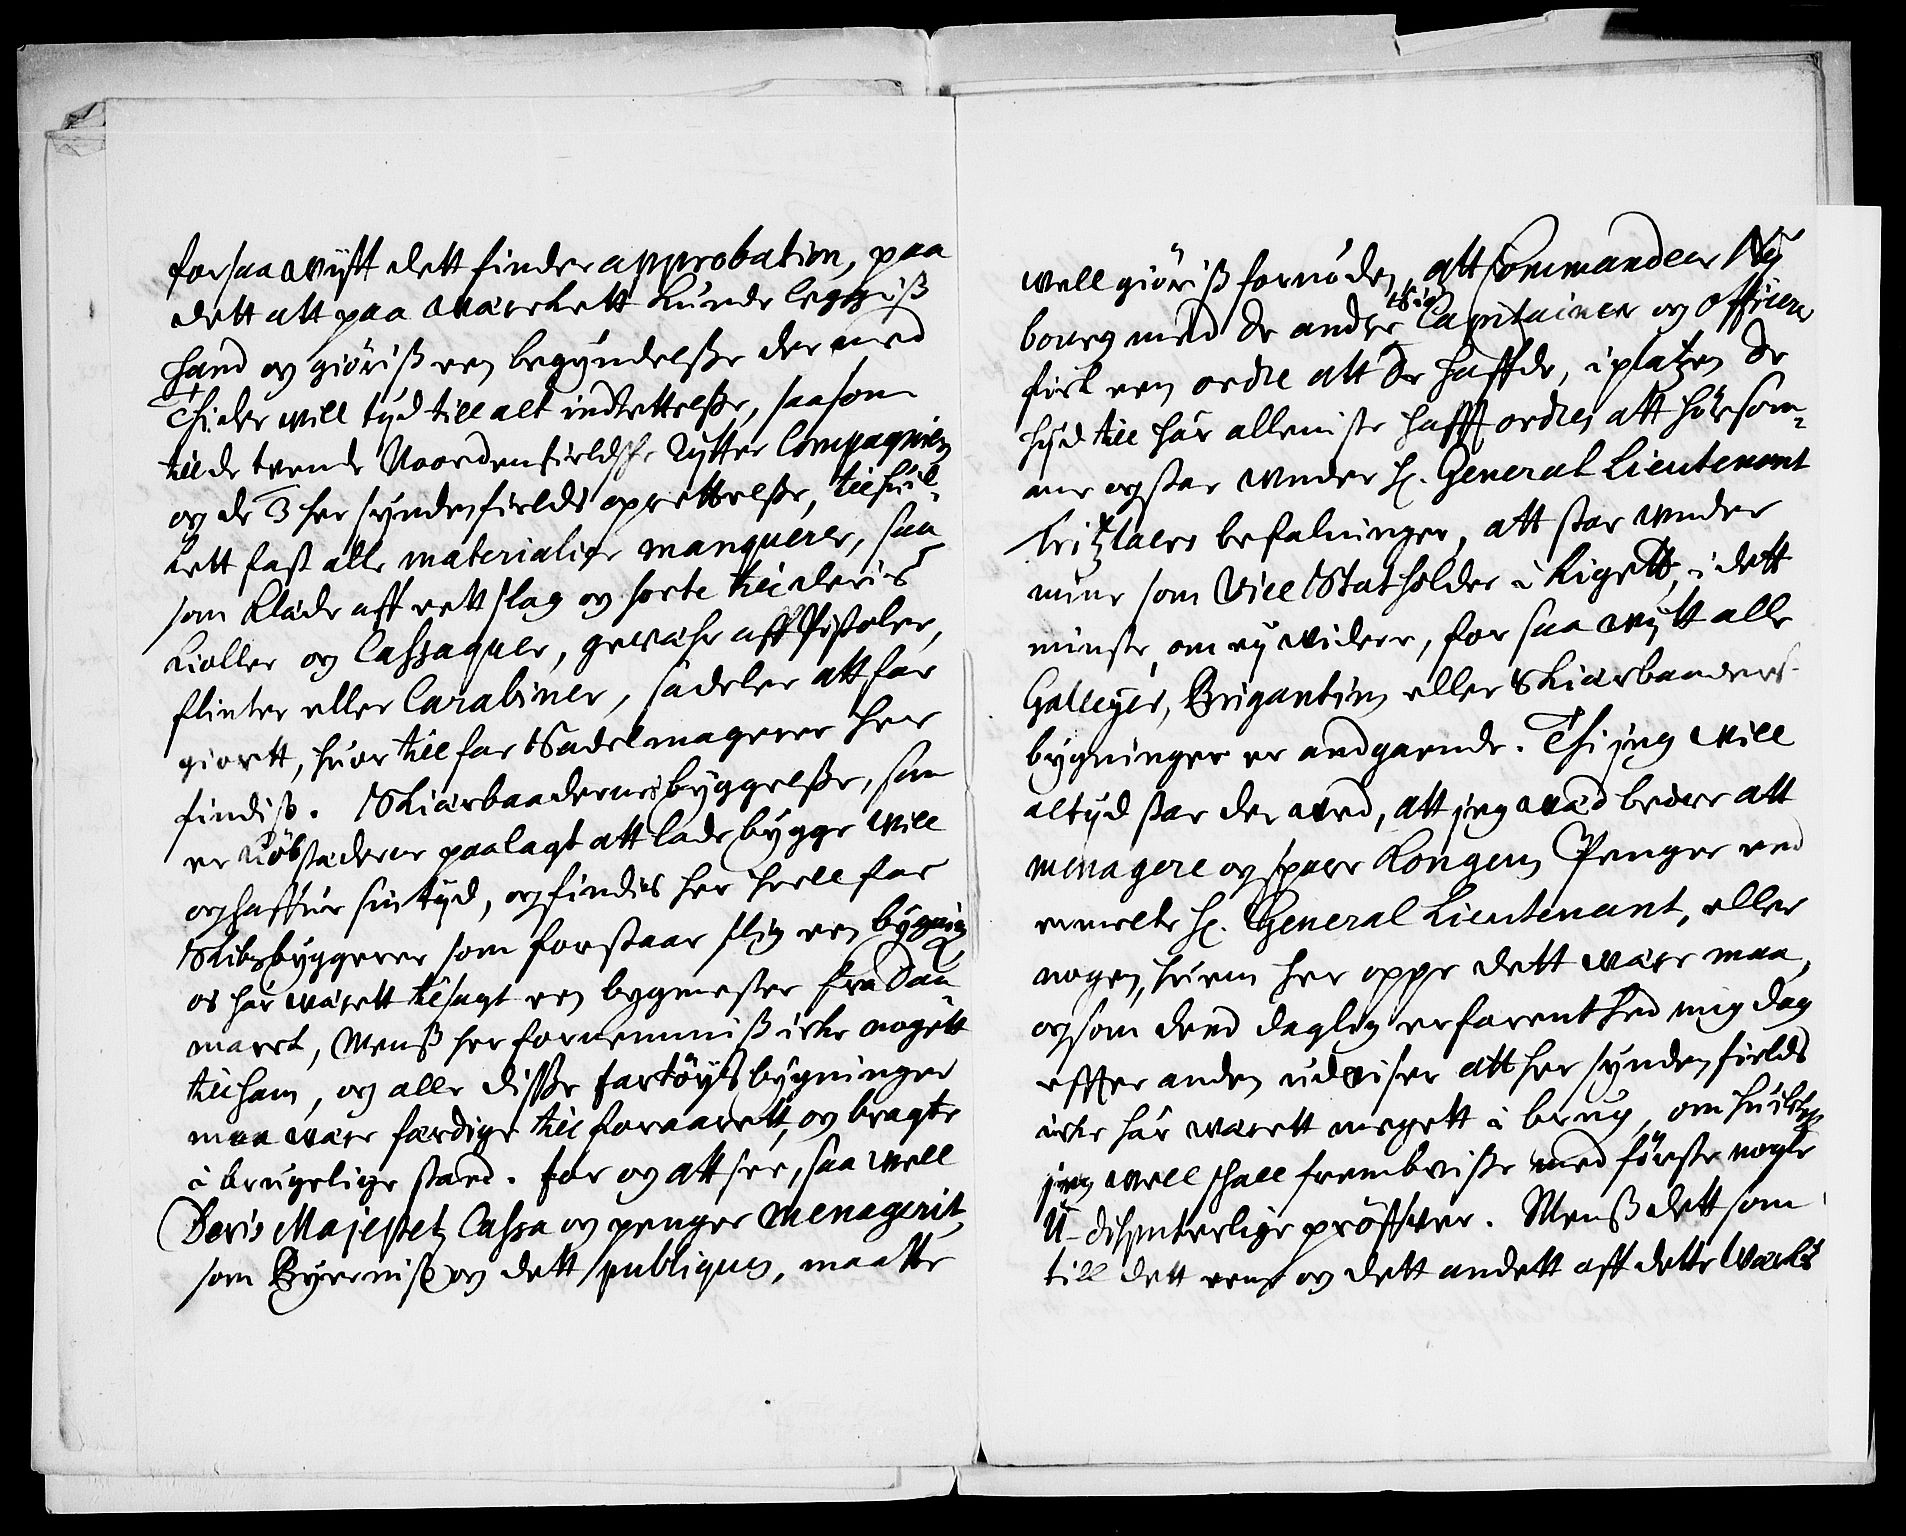 forsaa wijtt dett finder approbation, paa
dett att paa wærckett kunde leggis
hand og giöris een begyndelsse der med
Thi der will tyd till alt indrettelsse, saasom
till de tvende Noordenfieldske Rytter Compagnier
og de 3 her syndenfields oprettelsse, till huil-
kett fast alle materialier manquerer, saa
som klæde aff rett slag og sorte till deris
kioller og Cassaquer, gewæhr aff Pistoler,
flinter eller Carabiner, sadeler att faa
giortt, huor till faa Sadelmagerer her
findis. Skiærbaadernis byggelsse, som
er Kiöbstæderne paalagt att lade bygge will
og haffue sin tyd, og findis her heell faa
Skibsbyggerer som forstaar slig een bygning
os har wærett tilsagt een bygmester fra Dan
marck, Menss her fornemmiss icke nogett
till ham, og alle disse fartöyts bygninger
maa wære færdige till foraarett, og bragte
i brugelige stand. For og att see, saa well
Deris Majestetz Cassa og penger menagerit,
som Byerniss og dett publiquen, maatte
well giöris fornöden, att Commandeur Ny
bourg med de andre Söe Capitainer og Officerer
fick een ordre att de haffde, i platzen de
hid till har alleniste hafft ordres att hörsom-
me og staa under H. General Lieutenant
Tritzlaers befalninger, att staa under
mine som Vice Statholder i Rigett, i dett
minste, om ey videre, for saa wijtt alle
Galleyer, Brigantin eller Skiærbaaders
bygninger er andgaende. Thi jeg will
altyd staa der wed, att jeg weed bedre att
menagere og spare Kongens Penger end
ermelte H. General Lieutenant, eller
nogen, huem her oppe dett wære maa,
og som dend daglig erfarenthed mig dag
effter anden udviser att her syndenfields
icke har wærett megett i brug, om huilket
jeg well skall frembviise med förste nogle
U-disputerlige pröffver. Menss dett som
till dett eene og dett andett aff dette Wærcks